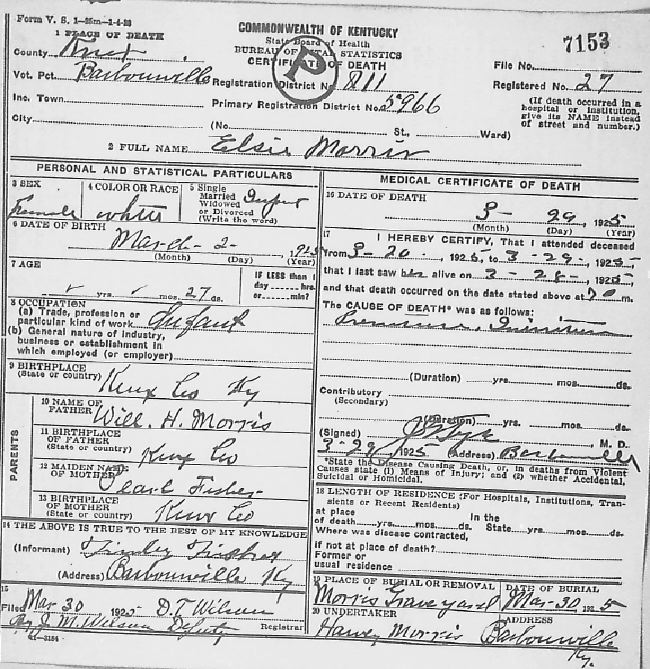 Form V. S. 1—25m—1-6-20
COMMONWEALTH OF KENTUCKY
State Board of Health
BUREAU OF VITAL STATISTICS
CERTIFICATE OF DEATH
P
7153
1 PLACE OF DEATH
County Knox
File No.
Vot. Pct. Barbourville
Registration District No. 811
Registered No. 27
Inc. Town
Primary Registration District No. 5966
(If death occurred in a hospital or institution, give its NAME instead of street and number.)
City (No. St., Ward)
2 FULL NAME Elsie Morris
PERSONAL AND STATISTICAL PARTICULARS
3 SEX Female
4 COLOR OR RACE white
5 Single Married Widowed or Divorced (Write the word) Infant
6 DATE OF BIRTH March - 2 - 1925
(Month) (Day) (Year)
7 AGE yrs. mos. 27 ds.
IF LESS than 1 day hrs. or min?
8 OCCUPATION
(a) Trade, profession or particular kind of work Infant
(b) General nature of industry, business or establishment in which employed (or employer)
9 BIRTHPLACE (State or country) Knox Co Ky
PARENTS
10 NAME OF FATHER Will. H. Morris
11 BIRTHPLACE OF FATHER (State or country) Knox Co
12 MAIDEN NAME OF MOTHER Pearl Fisher
13 BIRTHPLACE OF MOTHER (State or country) Knox Co
14 THE ABOVE IS TRUE TO THE BEST OF MY KNOWLEDGE
(Informant)
(Address) Barbourville Ky
15 Filed Mar 30 1925 D.T. Wilson
By J. M. Wilson Deputy Registrar
11—3184
MEDICAL CERTIFICATE OF DEATH
16 DATE OF DEATH 3 - 29, 1925
(Month) (Day) (Year)
17 I HEREBY CERTIFY, That I attended deceased
from 3-20-, 1925, to 3-29-, 1925
that I last saw her alive on 3-28-, 1925
and that death occurred on the date stated above at m.
The CAUSE OF DEATH* was as follows:
(Duration) yrs. mos. ds.
Contributory
(Secondary)
(Duration) yrs. mos. ds.
(Signed) M. D.
3-29, 1925 (Address) Barbourville
*State the Disease Causing Death, or, in deaths from Violent Causes state (1) Means of Injury; and (2) whether Accidental, Suicidal or Homicidal.
18 LENGTH OF RESIDENCE (For Hospitals, Institutions, Transients or Recent Residents)
at place of death yrs. mos. ds. In the State yrs. mos. ds.
Where was disease contracted,
if not at place of death?
Former or usual residence
19 PLACE OF BURIAL OR REMOVAL Morris Graveyard
DATE OF BURIAL Mar-30, 1925
20 UNDERTAKER Harvey Morris
ADDRESS Barbourville Ky.